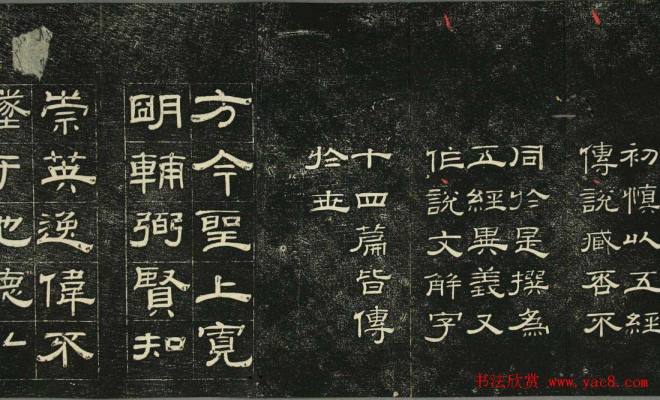 初慎以五經
傳說臧否不
同於是撰為
五經異義又
作說文解字
十四篇皆傳
於世
方今聖上寬
明輔弼賢知
崇英逸偉不
墜于地德
书法欣赏 www.yac8.com